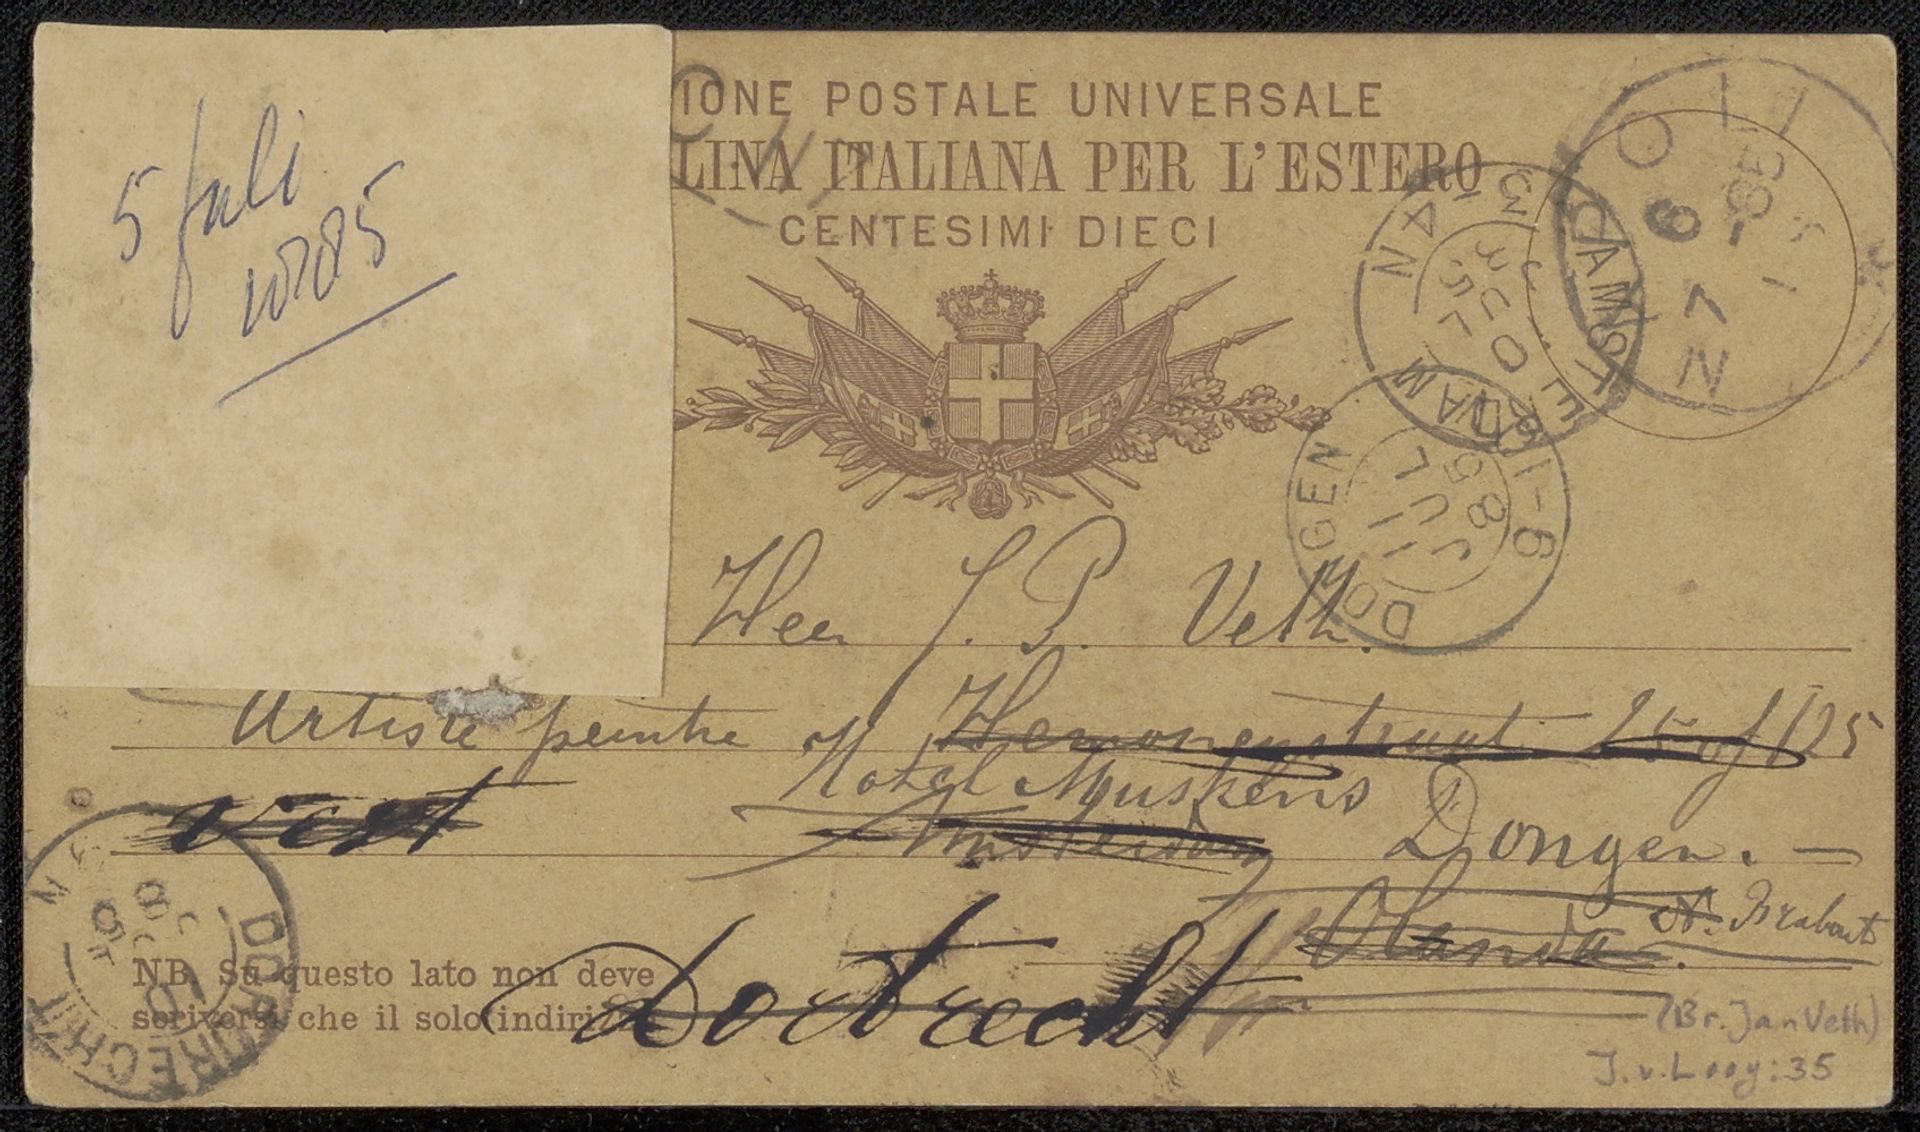 5 juli
1885
IONE POSTALE UNIVERSALE
LINA ITALIANA PER L'ESTERO
CENTESIMI DIECI
AMSTERDAM
DONGEN
JUL
85
Heer J. P. Veth.
Artiste peintre Hemonystraat 25 of 125
Hotel Muskens
Amsterdam Dongen. —
Olanda. N. Brabant
Dordrecht
DORDRECHT
NB. Su questo lato non deve
scriversi che il solo indirizzo
(Br. Jan Veth)
J. v. Looy: 35